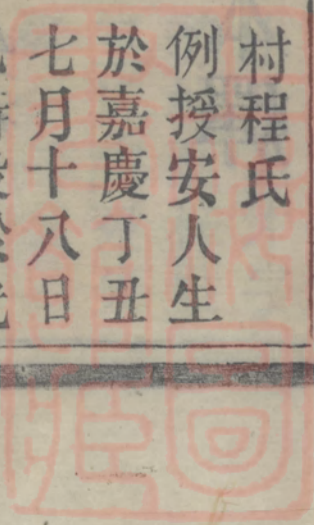 村程氏
例授安人生
於嘉慶丁丑
七月十八日